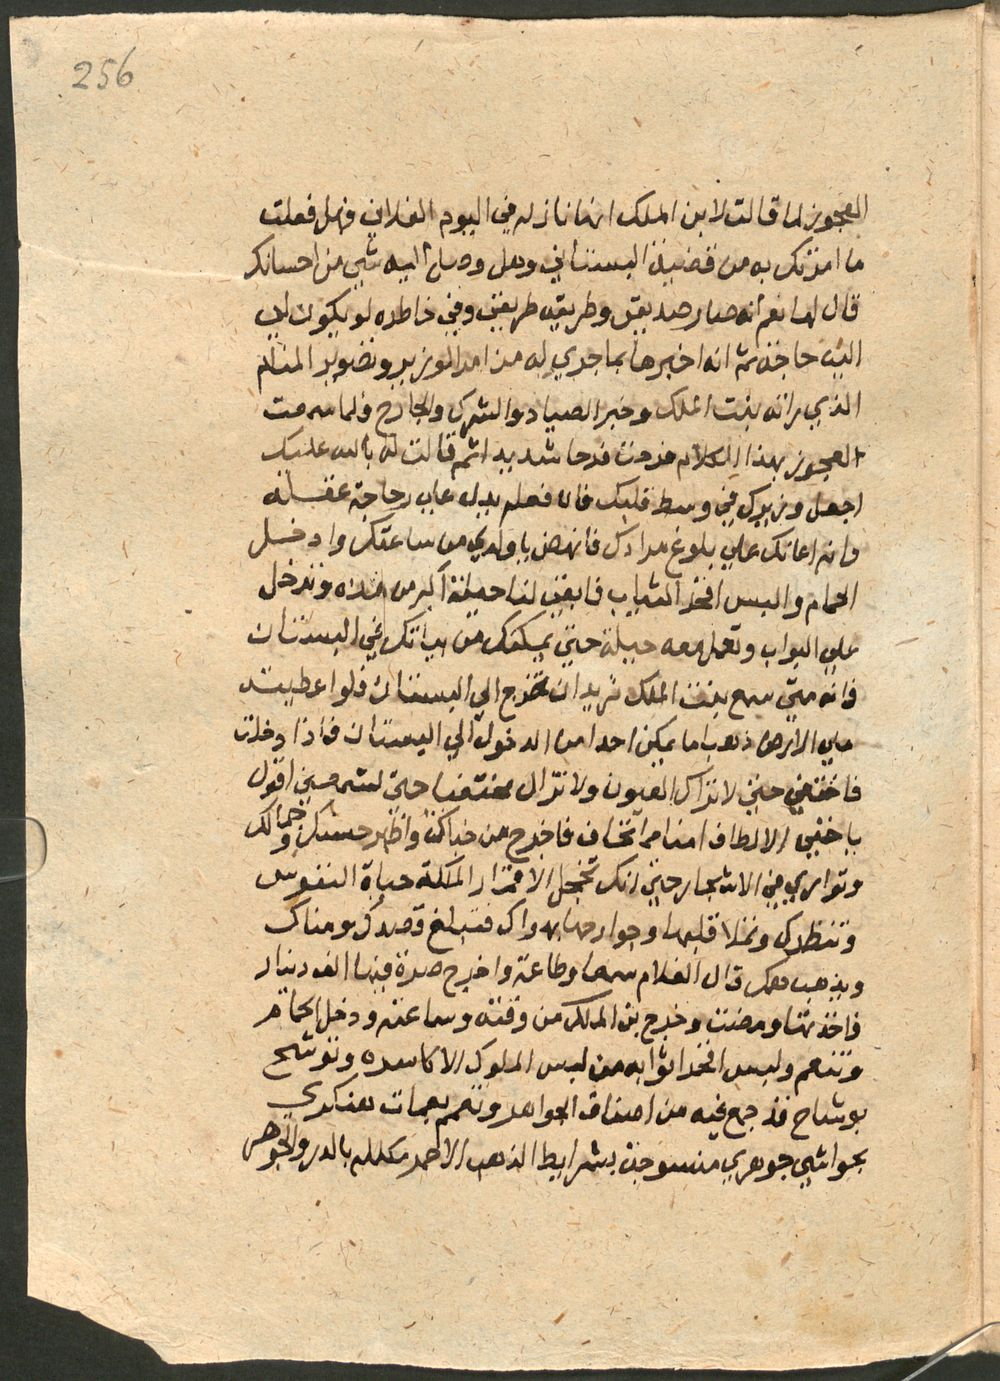 256
العجوز لما قالت لابن الملك انها نازله في اليوم الفلاني وهل فعلت
ما امرتك به من قضية البستاني وهل وصل اليه شي من احسانك
قال لها نعم أنه صار صديقي وطريقه طريقي وفي خاطره لو يكون لي
اليه حاجة ثم انه اخبرها بما جري له من امر الوزير وتصوير المنام
الذي راته بنت الملك وخبر الصياد والشرك والجارح فلما سمعت
العجوز بهذا الكلام فرحت فرحا شديدا ثم قالت له بالله عليك
اجعل وزيرك في وسط قلبك فان فعله يدل علي رجاحة عقله
وانه اعانك علي بلوغ مرادك فانهض يا ولدي من ساعتك وادخل
الحمام والبس افخر الثياب فما بقي لنا حيلة اكبر من هذه وتدخل
علي البواب وتعمل معه حيلة حتي يمكنك من بياتك في البستان
فانه متي سمع بنت الملك تريد ان تخرج الي البستان فلو اعطيته
ملي الارض ذهب ما يمكن احدا من الدخول الي البستان فاذا دخلت
فاختفي حتي لا تراك العيون ولا تزال مختفيا حتي تسمعني اقول
يا خفي الالطاف امنا مما نخاف فاخرج من خباك واظهر حسنك وجمالك
وتواري في الاشجار حتي انك تخجل الاقمار الملكة حياة النفوس
وتنظرك وتملا قلبها وجوارحها بهواك فتبلغ قصدك ومناك
ويذهب همك قال الغلام سمعا وطاعة واخرج صرة فيها الف دينار
فاخذتها ومضت وخرج بن الملك من وقته وساعته ودخل الحمام
وتنعم ولبس افخر اثوابه من لبس الملوك الاكاسره وتوشح
بوشاح قد جمع فيه من اصناف الجواهر وتعمم بعمامت هنكري
بحواشي جوهري منسوجة بشرايط الذهب الاحمر مكلله بالدر والجوهر